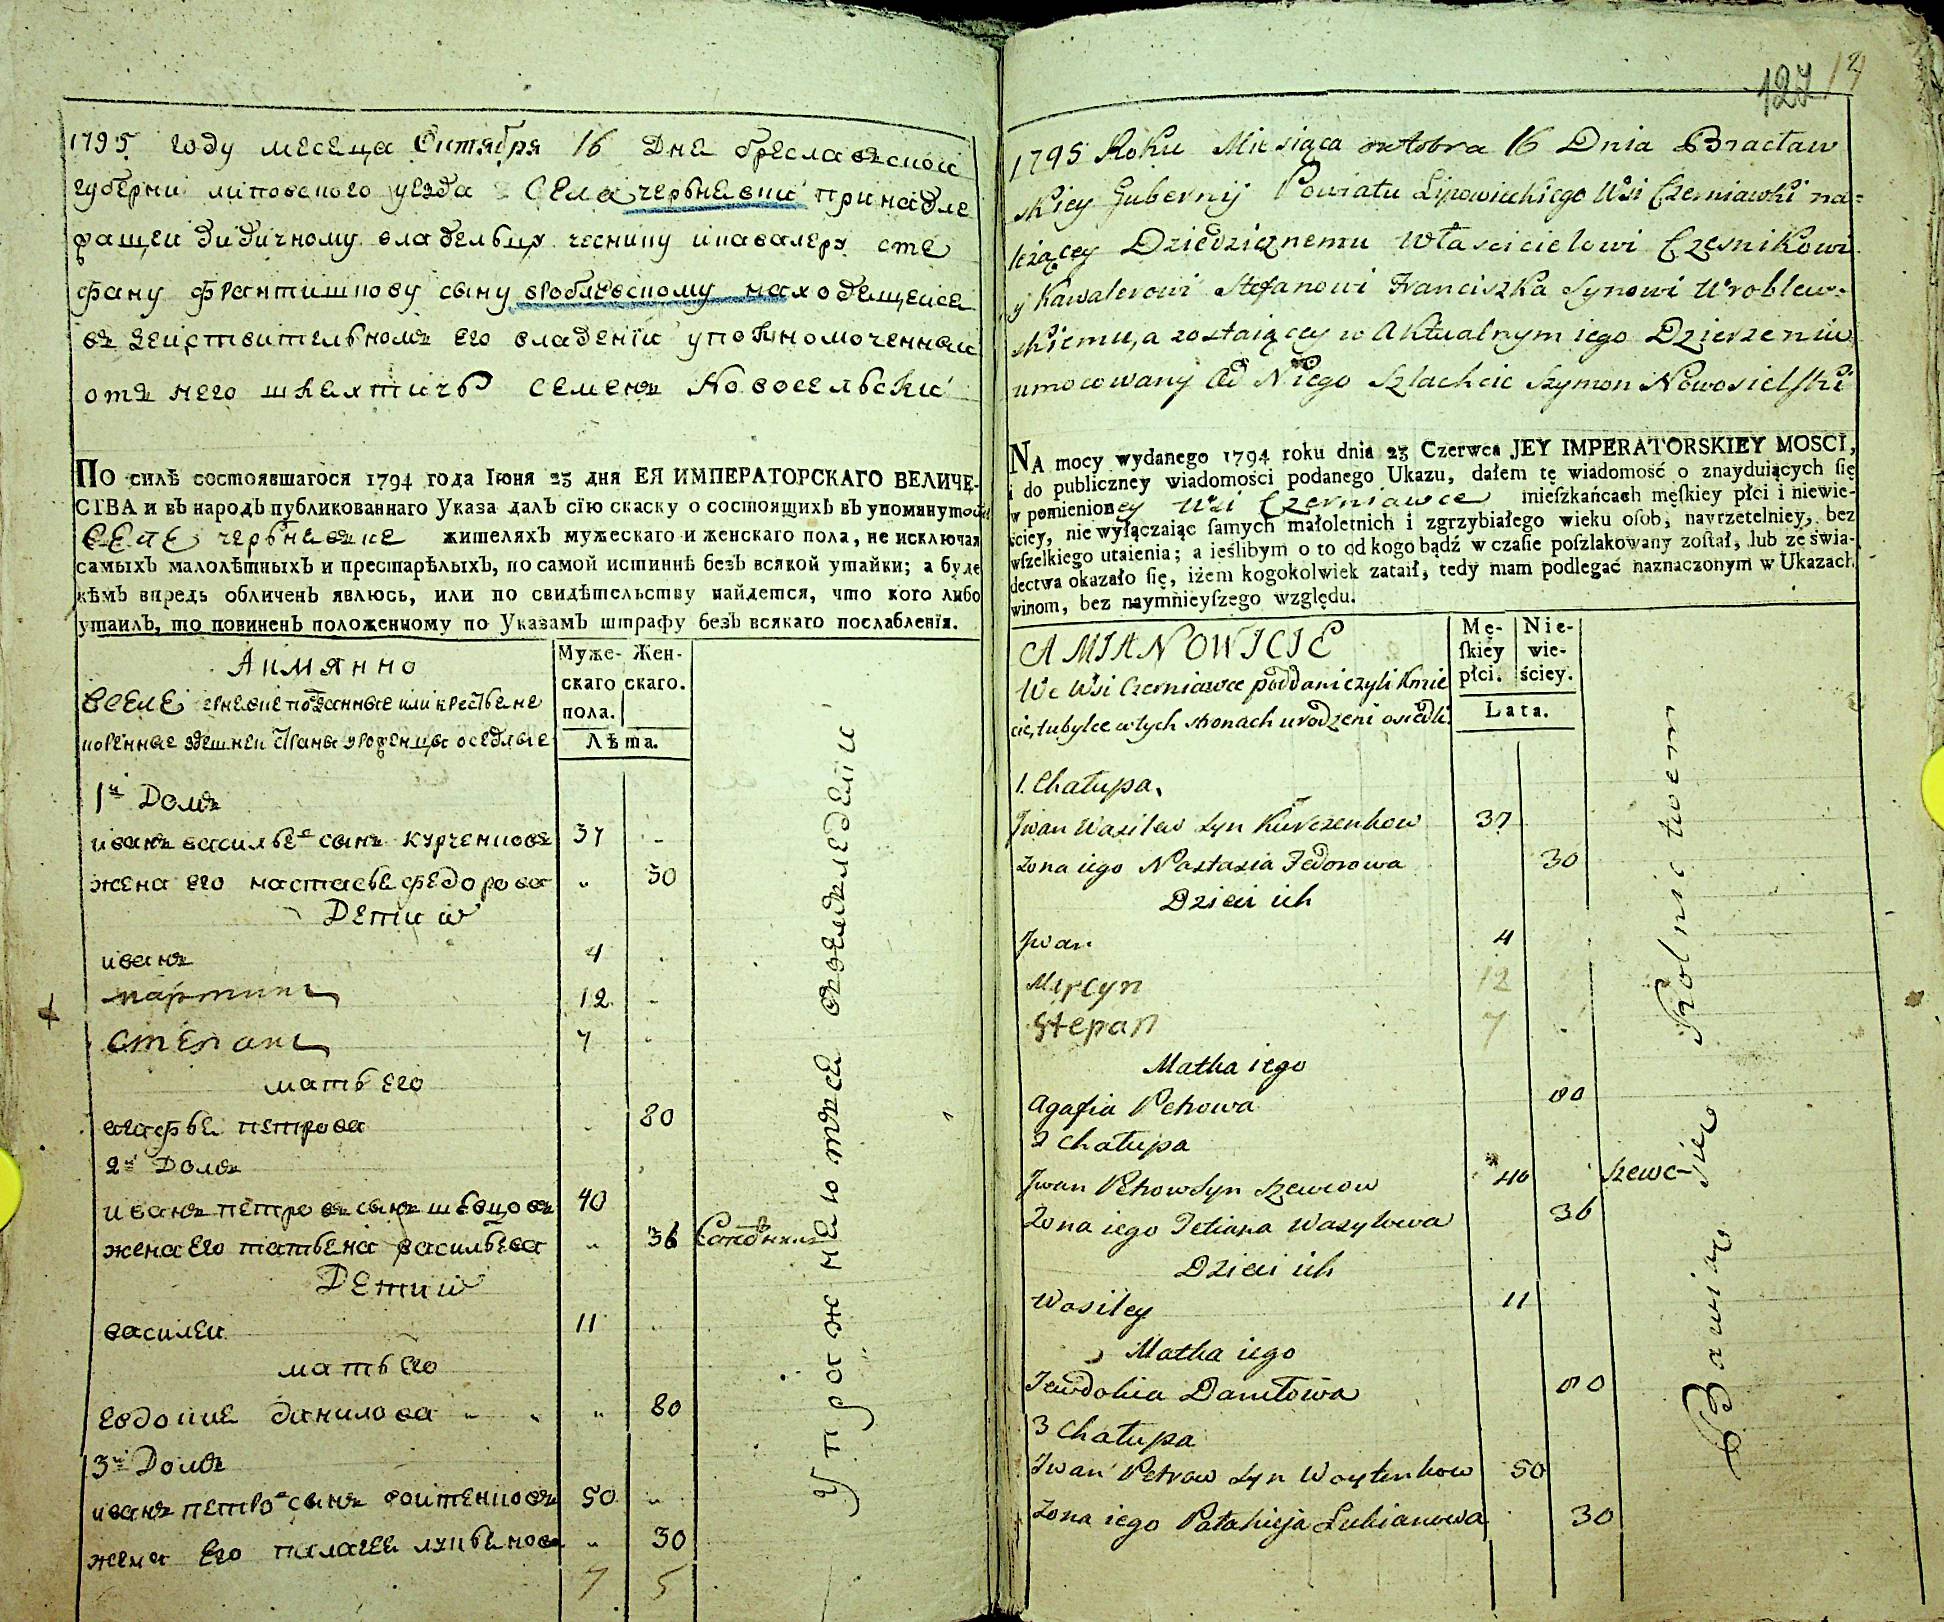 1795 году месеца Октября 16 дне бреславъскои
губерни липовского уезда села черневки принадле
жащеи дидичному владельцу чеснику икавалеру сте
фану францишкову сыну вроблевскому находещеисе
въ действительномъ его владении уполномоченныи
отъ него шляхтичъ семенъ Новосельски
ПО силѣ состоявшагося 1794 года Iюня 23 дня ЕЯ ИМПЕРАТОРСКАГО ВЕЛИЧЕ-
СТВА и въ народъ публикованнаго Указа далъ сïю скаску о состоящихъ въ упомянутомъ
селе черневке жителяхъ мужескаго и женскаго пола, не исключая
самыхъ малолѣтныхъ и престарѣлыхъ, по самой истиннѣ безъ всякой утайки; а буде
кѣмъ впредь обличенъ явлюсь, или по свидѣтельству найдется, что кого либо
утаилъ, то повиненъ положенному по Указамъ штрафу безъ всякаго послабленïя.
Аимянно
Муже- Жен-
скаго скаго.
пола.
Лѣта.
1й Домъ
иванъ василье сынъ курченковъ 37 -
жена его настасье федорова " 30
Дети и
иванъ 4
мартинъ 12 -
степанъ 7
мать его
агафье петрова 80
2й Домъ
иванъ петровъ сынъ шевцовъ 40
жена его татьена васильева " 36
Дети и
василеи 11
мать его
евдокие данилова " " " 80
3й Домъ
иванъ петро сынъ воитенковъ 50 "
жена его палагее лукьенова " 30
7 5
упражнеютъсе
127
1795 Roku Miesiąca oktobra 16 Dnia Bracław
skiey Gubernij Powiatu Lipowieckiego Wsi Czerniawki na=
leżącey Dziedzicznemu Właścicielowi Czesnikowi
y Kawalerowi Stefanowi Franciszka Synowi Wroblew=
skiemu, a zostaiącey w Aktualnym iego Dzierzeniu
umocowany Od Niego Szlachcic Szymon Nowosielski
NA mocy wydanego 1794 roku dnia 23 Czerwca JEY IMPERATORSKIEY MOSCI,
i do publiczney wiadomości podanego Ukazu, dałem tę wiadomość o znayduiących ſię
w pomienioney Wsi Czerniawce mieſzkańcach męſkiey płci i niewie-
ściey, nie wyłączaiąc ſamych małoletnich i zgrzybiałego wieku oſob, nayrzetelniey, bez
wſzelkiego utaienia; a ieślibym o to od kogo bądź w czaſie poſzlakowany zoſtał, lub ze świa-
dectwa okazało ſię, iżem kogokolwiek zataił, tedy mam podlegać naznaczonym w Ukazach
winom, bez naymnieyſzego względu.
A MIANOWICIE
Mę- Nie-
ſkiey wie-
płci. ściey.
Lata.
We Wsi Czerniawce poddani czyli Kmie
cie, tubylce w tych stronach urodzeni osiedli
1. Chałupa.
Jwan Wasilew Syn Kurczenkow 37
Zona iego Nastasia Fedorowa 30
Dzieci ich
Jwan 4
Marcyn 12
Stepan 7
Matka iego
Agafia Petrowa 80
2 Chałupa
Jwan Petrow Syn Szewcow 40 szewc
Zona iego Tetiana Wasylowa 36
Dzieci ich
Wasiley 11
Matka iego
Jewdokia Daniłowa 80
3 Chałupa
Jwan Petrow Syn Woytenkow 50
Zona iego Pałahieja Lukianowa 30
Bawią się Rolnictwem